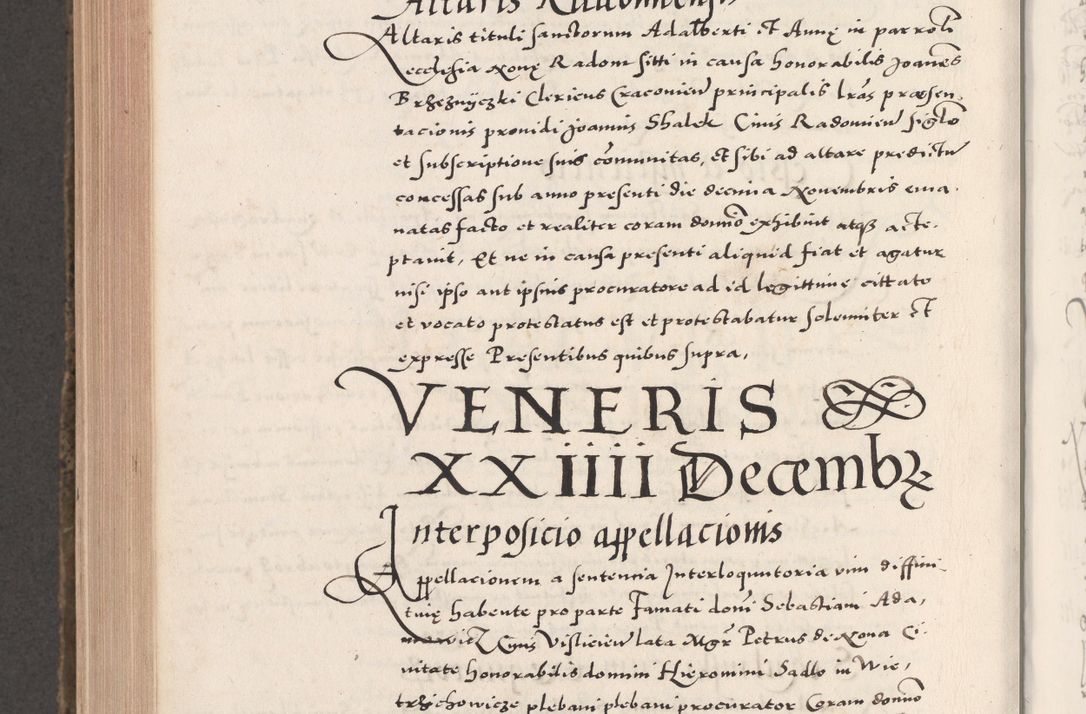 Altaris Radomiensis
Altaris tituli sanctorum Adalberti et Annę in parroti
ecclesia Nonę Radom siti in causa honorabilis Joannes
Brzeznyczki Clericus Cracovien principalis lras præsen-
tacionis providi Joannis Shalek Civis Radomien siglo
et subscriptione suis comunitas, et sibi ad altare predictu
concessas sub anno presenti die decima Novembris ema-
natas facto et realiter coram domino exhibuit atqȝ acte-
ptavit, Et ne in causa presenti aliquid fiat et agatur
nisi ipso aut ipsius procuratore ad id legittime cittato
et vocato protestatus est et protestabatur solenniter et
expresse Presentibus quibus supra,
VENERIS
XXIIII Decembr
Interposicio appellacionis
Appellacionem a sentencia Interloquutoria vim diffini-
tivę habente pro parte Famati domi Sebastiani Ada,
mowicz Civis Vislicien lata Mgr Petrus de Nona Ci-
vitate honorabilis domini Hieromini Sadlo in Wie,
trzichowicze plebani plebani procurator Coram domino